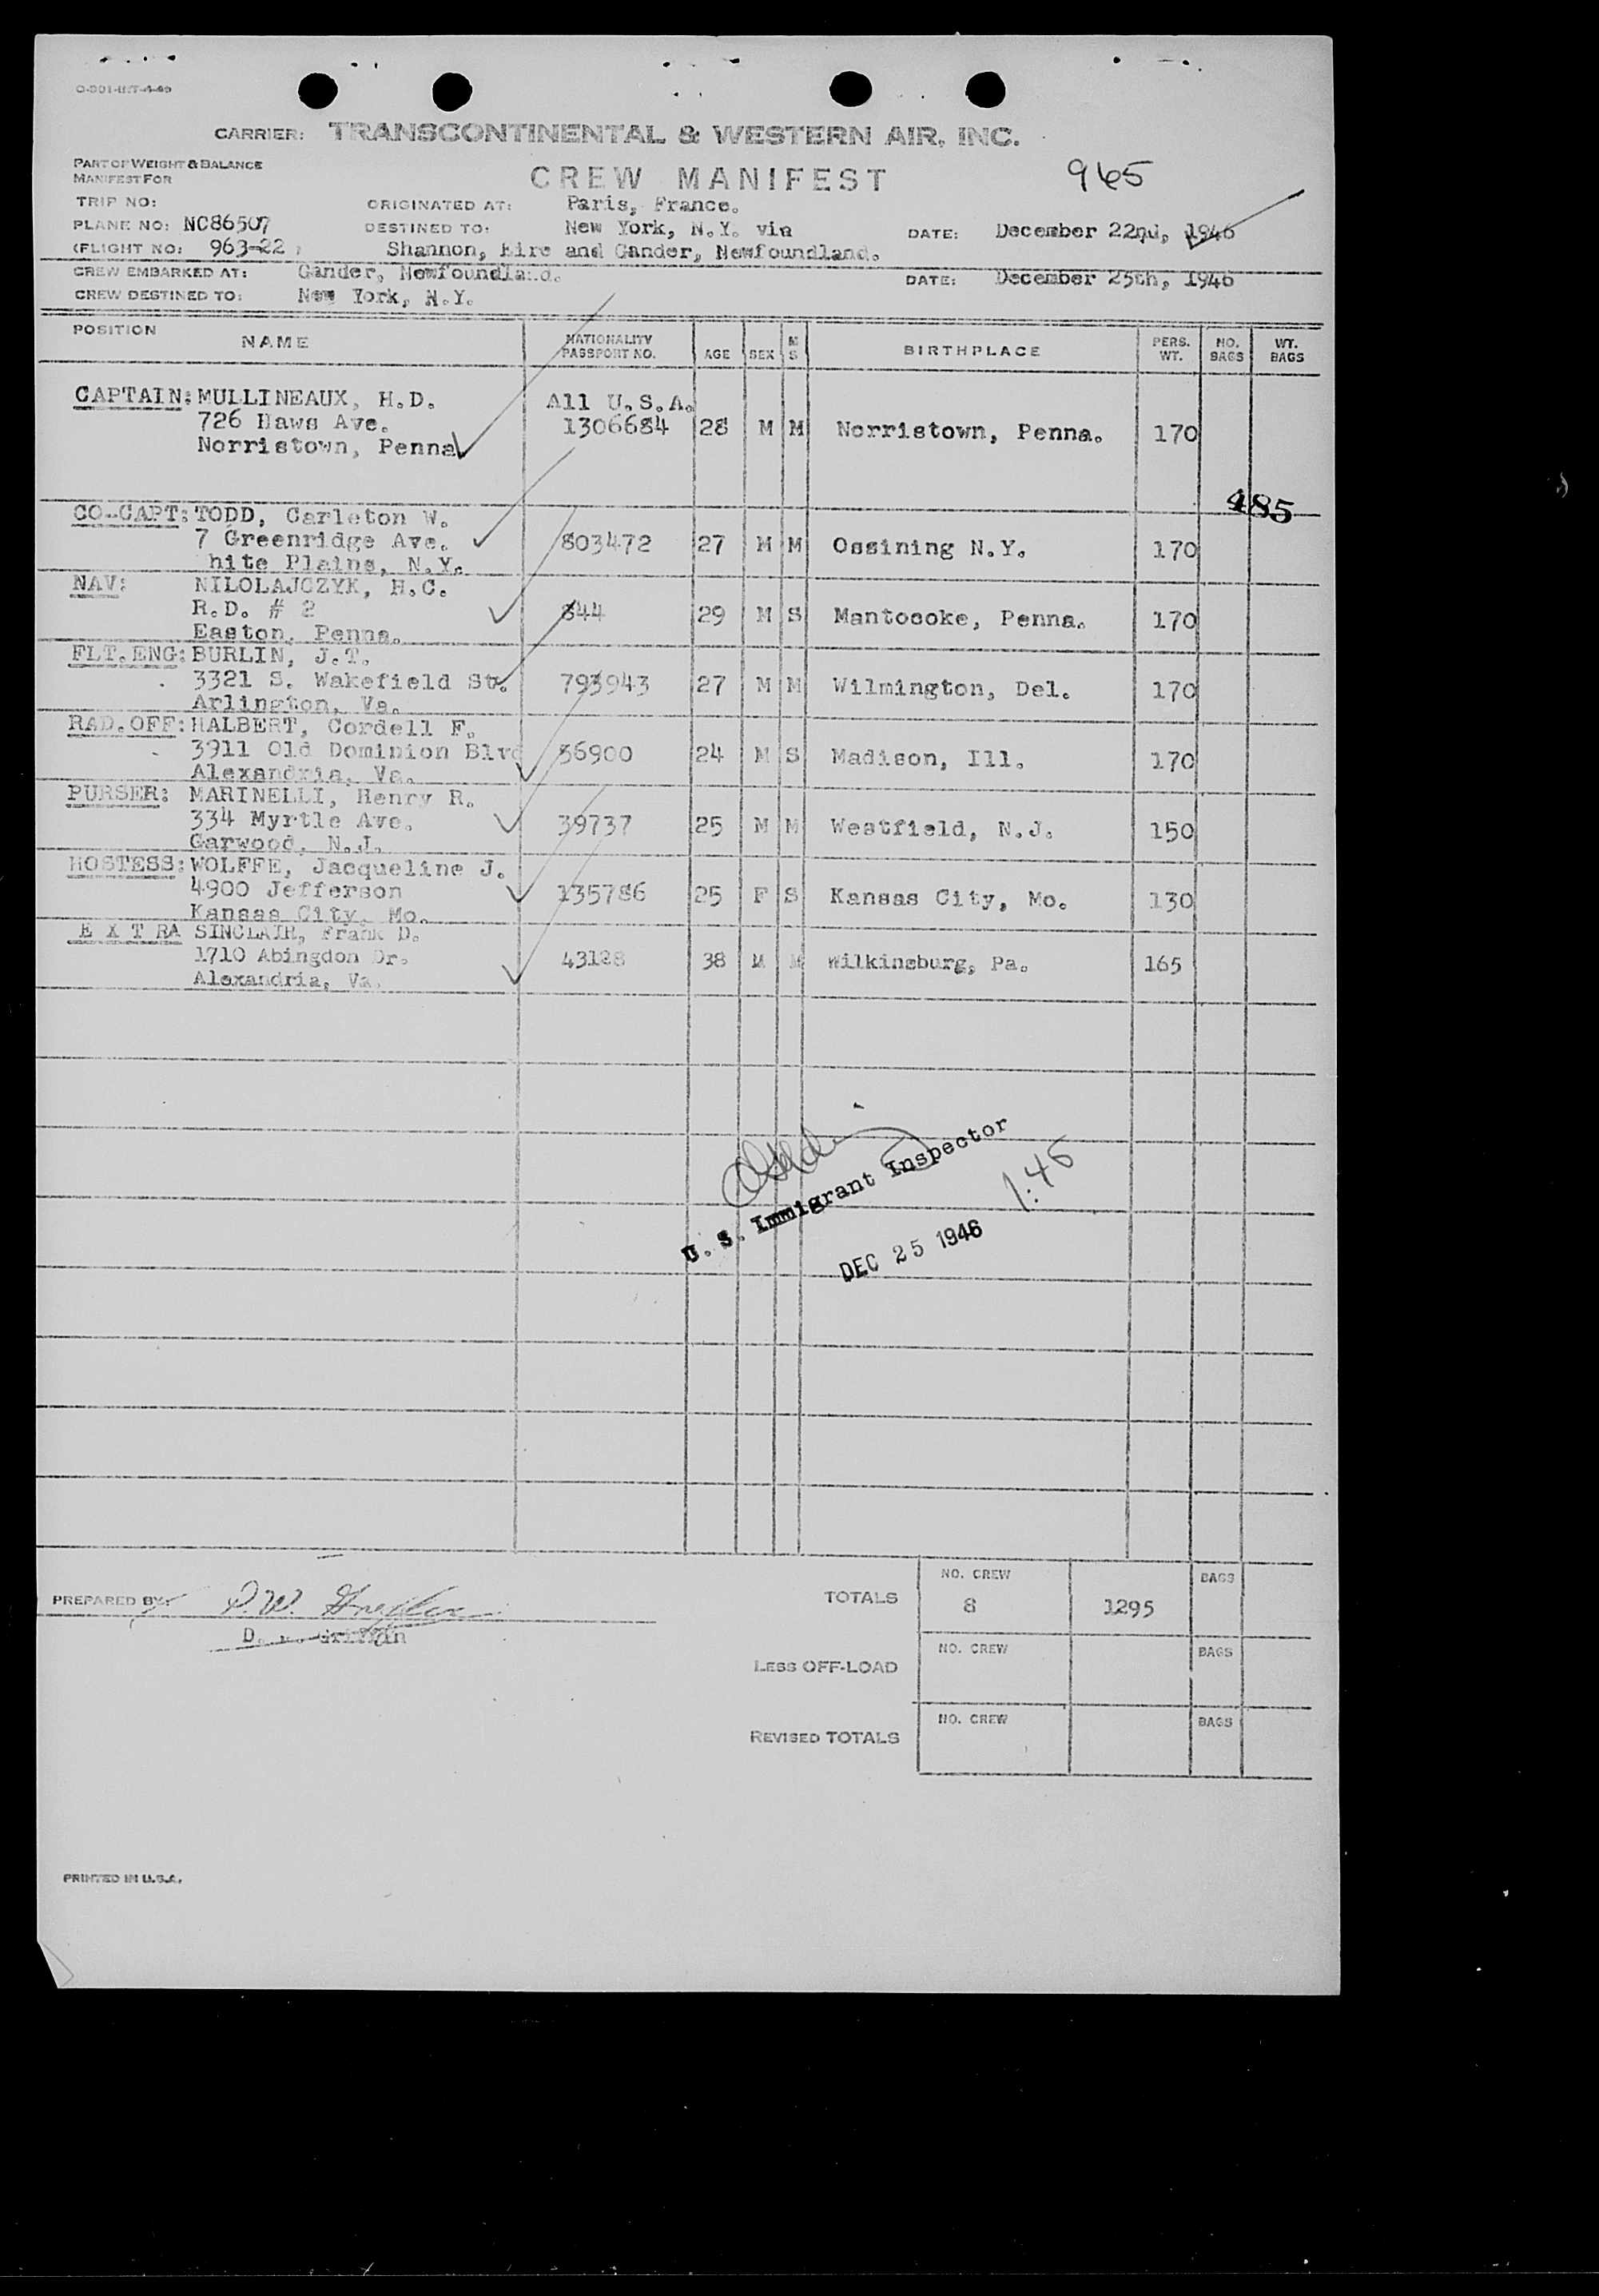 CARRIER: TRANSCONTINENTAL & WESTERN AIR, INC.
PART OF WEIGHT & BALANCE
MANIFEST FOR
CREW MANIFEST
965
TRIP NO:
ORIGINATED AT: Paris, France.
PLANE NO: NC86507
DESTINED TO: New York, N.Y. via
DATE: December 22nd, 1946
(FLIGHT NO: 963-22
Shannon, Eire and Gander, Newfoundland.
CREW EMBARKED AT: Gander, Newfoundland.
DATE: December 25th, 1946
CREW DESTINED TO: New York, N.Y.
POSITION NAME NATIONALITY PASSPORT NO. AGE SEX M S BIRTHPLACE PERS. WT. NO. BAGS WT. BAGS
CAPTAIN: MULLINEAUX, H.D. All U.S.A.
726 Haws Ave. 1306684 28 M M Norristown, Penna. 170
Norristown, Penna
485
CO-CAPT: TODD, Carleton W.
7 Greenridge Ave. 803472 27 M M Ossining N.Y. 170
hite Plains, N.Y.
NAV: NILOLAJCZYK, H.C.
R.D. # 2 844 29 M S Mantocoke, Penna. 170
Easton, Penna.
FLT.ENG: BURLIN, J.T.
3321 S. Wakefield St. 793943 27 M M Wilmington, Del. 170
Arlington, Va.
RAD.OFF: HALBERT, Cordell F.
3911 Old Dominion Blvd 36900 24 M S Madison, Ill. 170
Alexandria, Va.
PURSER: MARINELLI, Henry R.
334 Myrtle Ave. 39737 25 M M Westfield, N.J. 150
Garwood, N.J.
HOSTESS: WOLFFE, Jacqueline J.
4900 Jefferson 135786 25 F S Kansas City, Mo. 130
Kansas City, Mo.
E X T RA SINCLAIR, Frank D.
1710 Abingdon Dr. 43128 38 M M Wilkinsburg, Pa. 165
Alexandria, Va.
U. S. Immigrant Inspector
1:45
DEC 25 1946
PREPARED BY:
D. Griffin
TOTALS NO. CREW 8 1295 BAGS
LESS OFF-LOAD NO. CREW BAGS
REVISED TOTALS NO. CREW BAGS
PRINTED IN U.S.A.